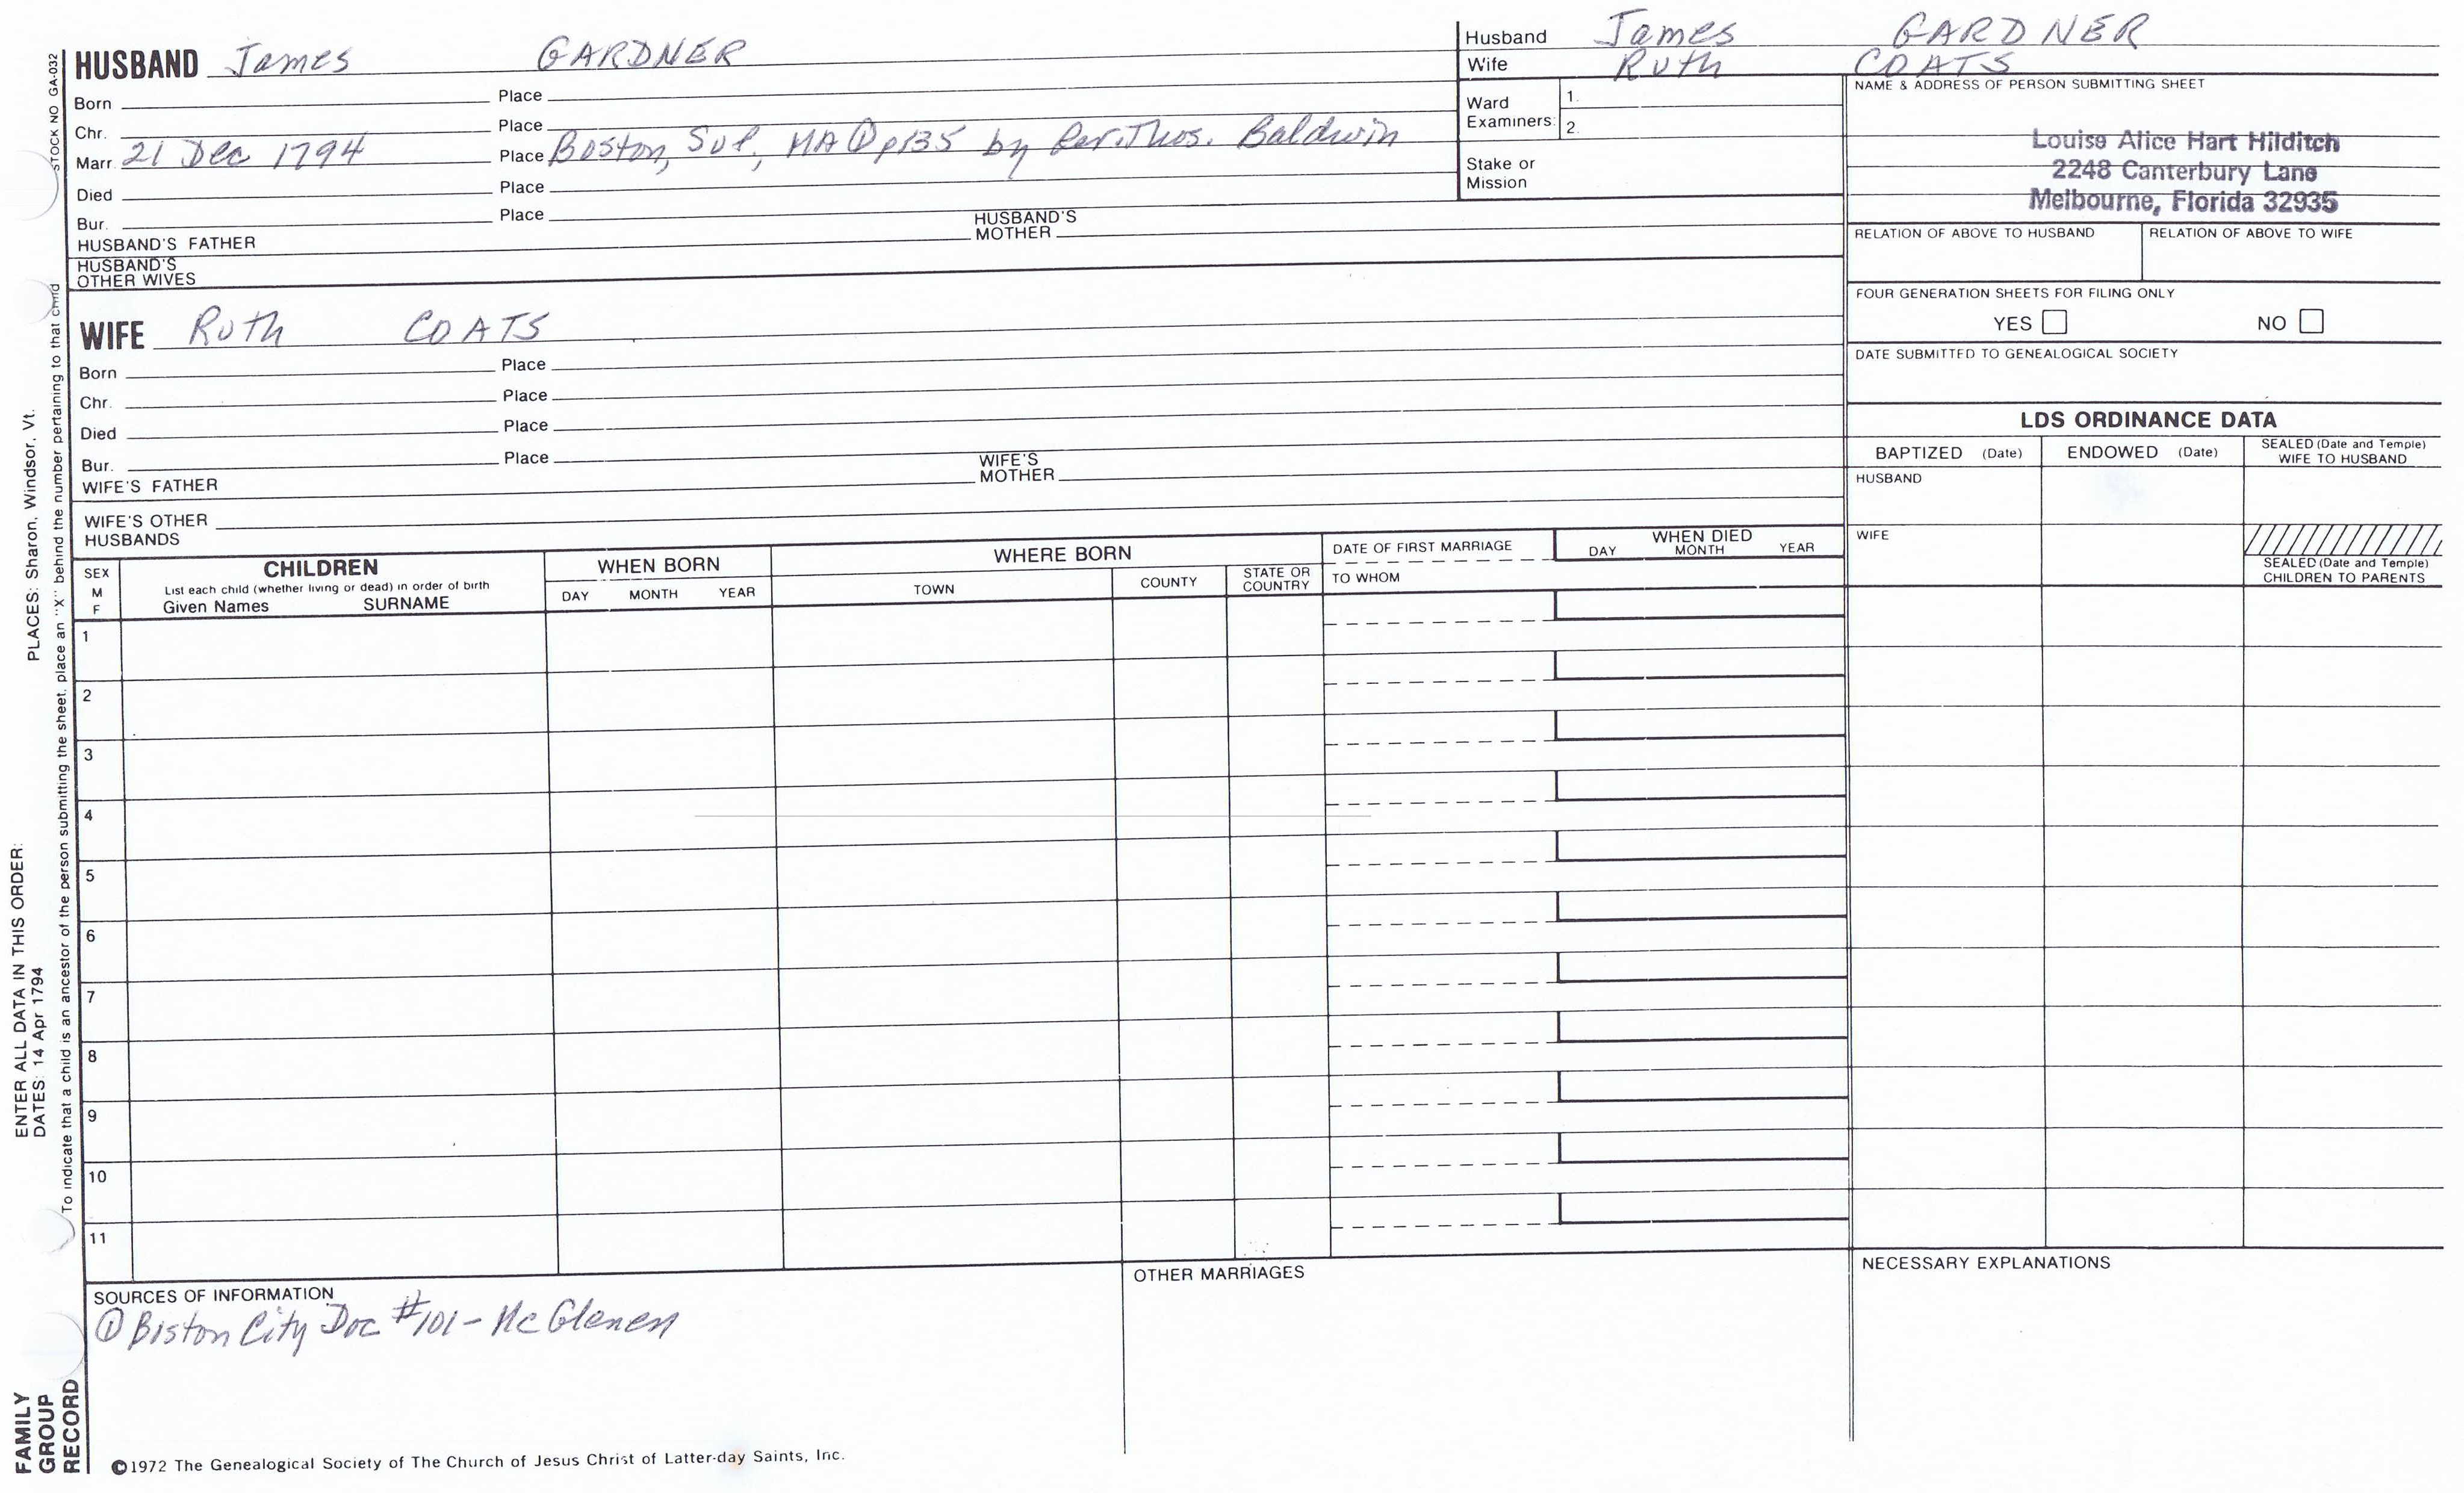 HUSBAND James GARDNER
Born Place
Chr. Place
Marr. 21 Dec 1794 Place Boston, Suf, MA ① p135 by Rev. Thos. Baldwin
Died Place
Bur. Place
HUSBAND'S FATHER HUSBAND'S MOTHER
HUSBAND'S
OTHER WIVES
WIFE Ruth COATS
Born Place
Chr. Place
Died Place
Bur. Place
WIFE'S FATHER WIFE'S MOTHER
WIFE'S OTHER
HUSBANDS
Husband James GARDNER
Wife Ruth COATS
Ward
Examiners:
1.
2.
Stake or
Mission
NAME & ADDRESS OF PERSON SUBMITTING SHEET
Louise Alice Hart Hilditch
2248 Canterbury Lane
Melbourne, Florida 32935
RELATION OF ABOVE TO HUSBAND RELATION OF ABOVE TO WIFE
FOUR GENERATION SHEETS FOR FILING ONLY
YES NO
DATE SUBMITTED TO GENEALOGICAL SOCIETY
LDS ORDINANCE DATA
BAPTIZED (Date) ENDOWED (Date) SEALED (Date and Temple)
WIFE TO HUSBAND
HUSBAND
WIFE
SEALED (Date and Temple)
CHILDREN TO PARENTS
SEX
M
F
CHILDREN
List each child (whether living or dead) in order of birth
Given Names SURNAME
WHEN BORN
DAY MONTH YEAR
WHERE BORN
TOWN COUNTY STATE OR
COUNTRY
DATE OF FIRST MARRIAGE
TO WHOM
WHEN DIED
DAY MONTH YEAR
1
2
3
4
5
6
7
8
9
10
11
SOURCES OF INFORMATION
① Biston City Doc #101 - McGlenen
OTHER MARRIAGES
NECESSARY EXPLANATIONS
©1972 The Genealogical Society of The Church of Jesus Christ of Latter-day Saints, Inc.
STOCK NO GA-032
To indicate that a child is an ancestor of the person submitting the sheet, place an "X" behind the number pertaining to that child
ENTER ALL DATA IN THIS ORDER:
DATES: 14 Apr 1794
PLACES: Sharon, Windsor, Vt.
FAMILY
GROUP
RECORD